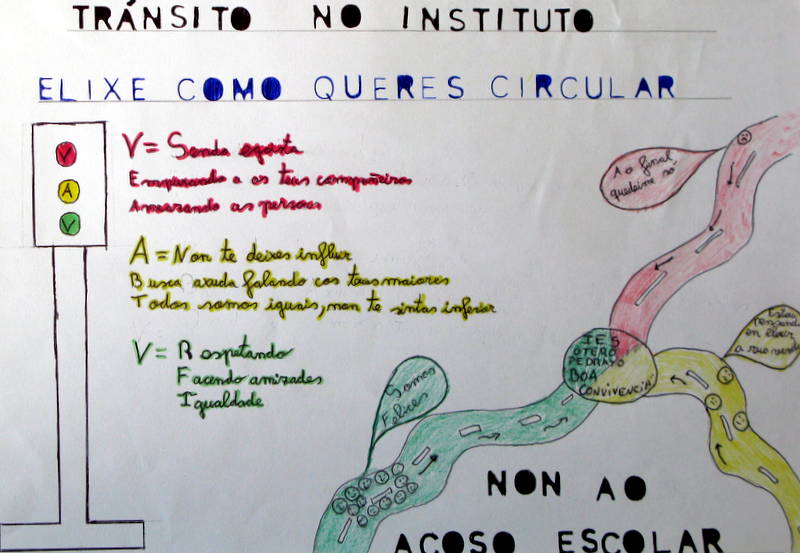 TRÁNSITO NO INSTITUTO
ELIXE COMO QUERES CIRCULAR
V
A
V
V = Senda egoista
Empuxando a os teus compañeiros
Amenazando as persoas
A = Non te deixes influír
Busca axuda falando cos teus maiores
Todos somos iguais, non te sintas inferior
V = Respetando
Facendo amizades
Igualdade
Ao final,
quedeime só
IES
OTERO
PEDRAYO
BOA
CONVIVENCIA
Estou
pensando
en elixir
a rúa verde
Somos
Felices
NON AO
ACOSO ESCOLAR